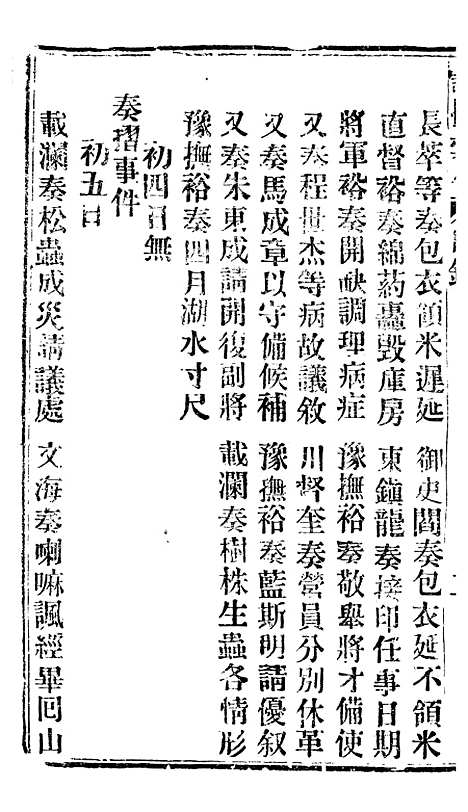 長萃等奏包衣領米遲延 御史閻奏包衣延不領米
直督裕奏綿葯轟毀庫房 東鎮龍奏接印任事日期
將軍裕奏開缺調理病症 豫撫裕奏敬舉將才備使
又奏程世杰等病故議敘 川督奎奏營員分別休革
又奏馬成章以守備候補 豫撫裕奏藍斯明請優叙
又奏朱東成請開復副將 載瀾奏樹株生蟲各情形
豫撫裕奏四月湖水寸尺
初四日無
奏摺事件
初五日
載瀾奏松蟲成災請議處 文海奏喇嘛諷經畢囘山